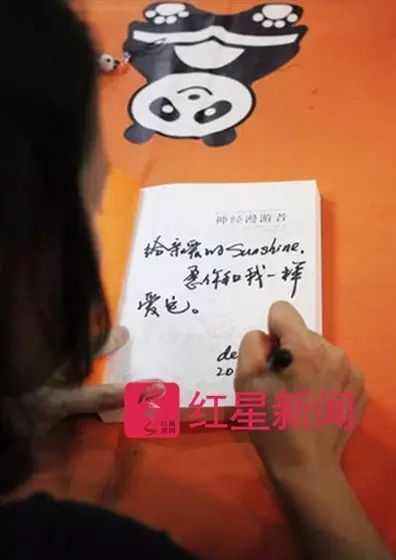 神经漫游者
给亲爱的Sunshine,
愿你和我一样
爱它。
de
20
红星新闻
红星新闻